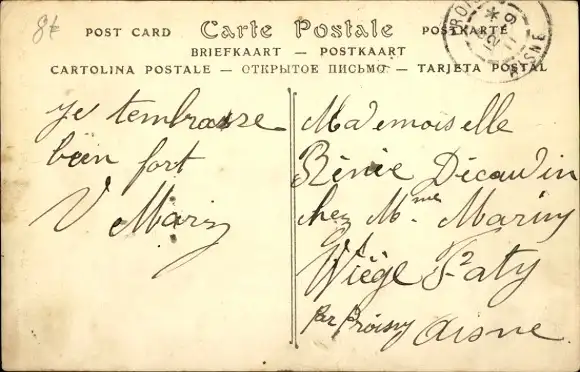 8t
POST CARD Carte Postale POSTKARTE
BRIEFKAART — POSTKAART
CARTOLINA POSTALE — ОТКРЫТОЕ ПИСЬМО — TARJETA POSTAL
AISNE
Je tembrasse
bien fort
V Mariy
Mademoiselle
Rénée Décaudin
chez Mme Mariny
Wiège Faty
par Proisy Aisne